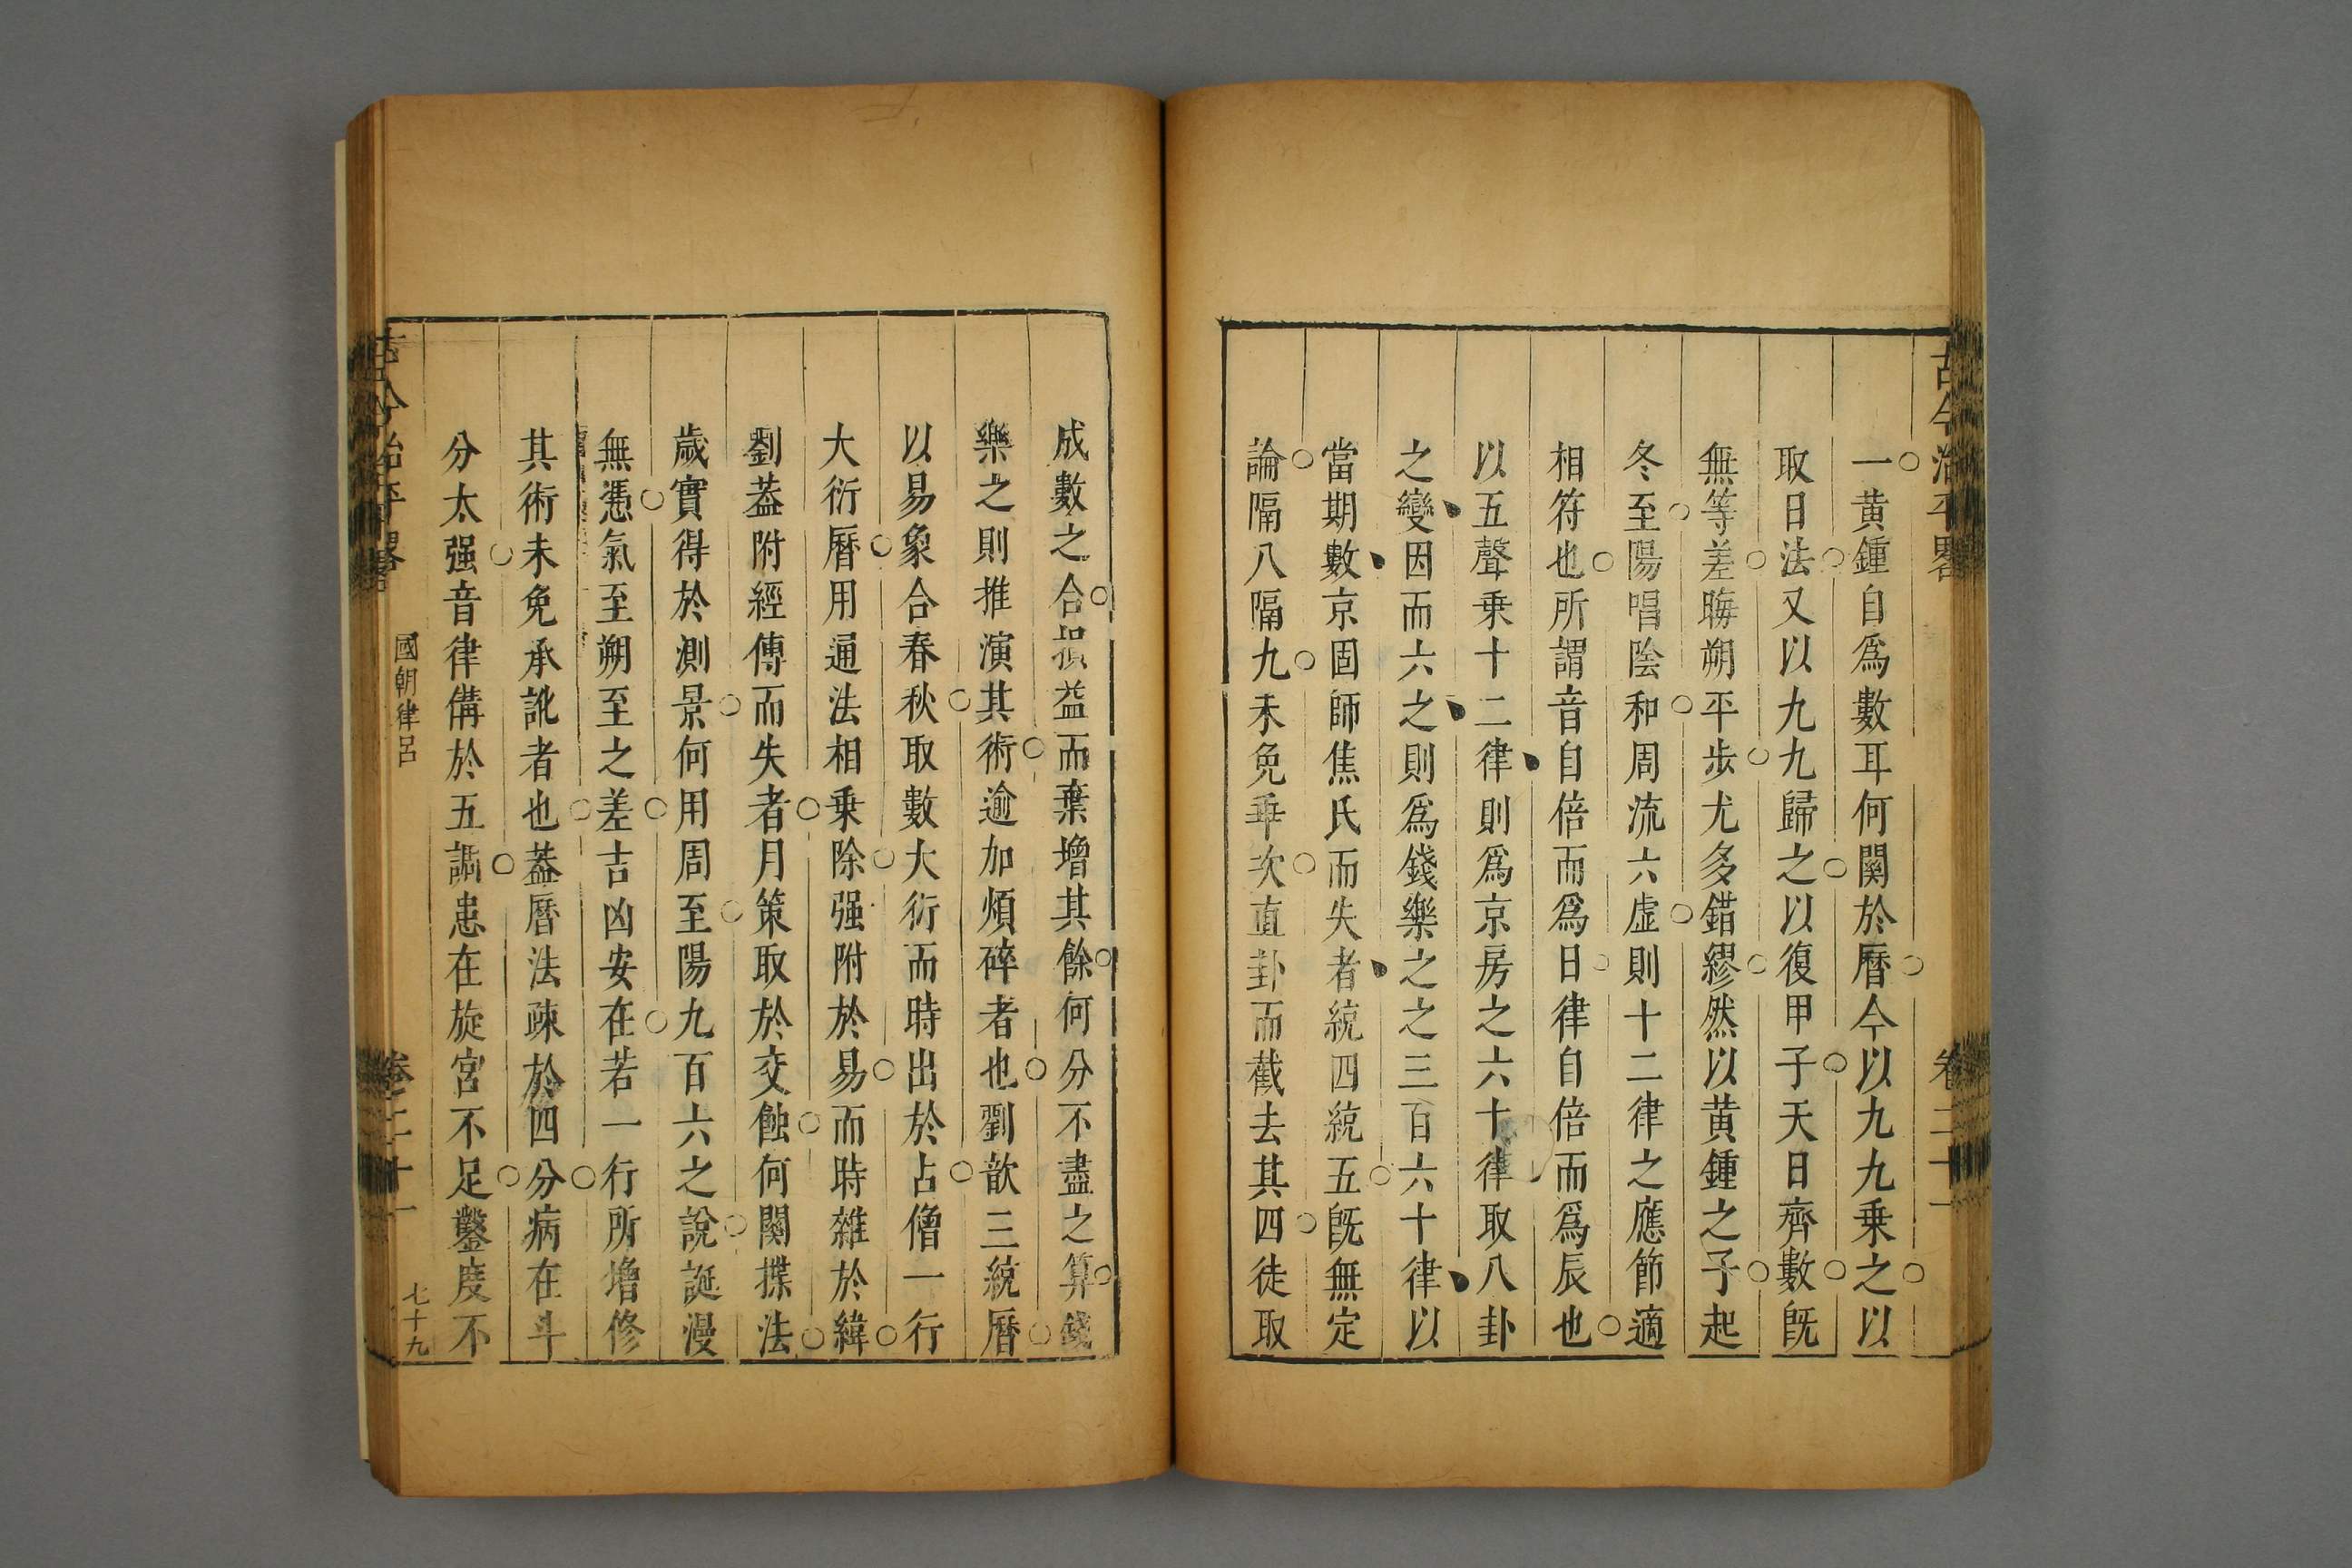 古今治平畧 卷二十一
一黄鍾自爲數耳何關於曆今以九九乗之以
取日法又以九九歸之以復甲子天日齊數旣
無等差晦朔平步尤多錯繆然以黄鍾之子起
冬至陽唱陰和周流六虛則十二律之應節適
相符也所謂音自倍而爲日律自倍而爲辰也
以五聲乗十二律則爲京房之六十律取八卦
之變因而六之則爲錢樂之之三百六十律以
當期數京固師焦氏而失者統四統五旣無定
論隔八隔九未免乖次直卦而截去其四徒取
成數之合損益而棄增其餘何分不盡之算錢
樂之則推演其術逾加煩碎者也劉歆三統曆
以易象合春秋取數大衍而時出於占僧一行
大衍曆用通法相乗除强附於易而時雜於緯
劉葢附經傳而失者月策取於交蝕何關揲法
歲實得於測景何用周至陽九百六之說誕漫
無憑氣至朔至之差吉凶安在若一行所增修
其術未免承訛者也葢曆法疎於四分病在斗
分太强音律備於五調患在旋宮不足鑿度不
古今治平畧 國朝律呂 卷二十一 七十九